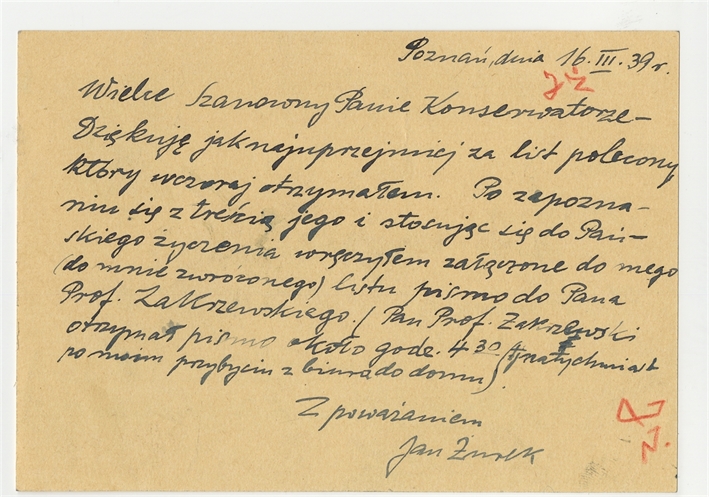 Poznań, dnia 16. III. 39 r.
Wielce Szanowny Panie Konserwatorze –
Dziękuję jaknajuprzejmiej za list polecony,
który wczoraj otrzymałem. Po zapozna-
niu się z treścią jego i stosując się do Pań-
skiego życzenia wręczyłem załączone do mego
(do mnie zwróconego) listu pismo do Pana
Prof. Zakrzewskiego. / Pan Prof. Zakrzewski
otrzymał pismo około godz. 4 30 (natychmiast
po moim przybyciu z biura do domu).
Z poważaniem
Jan Żurek